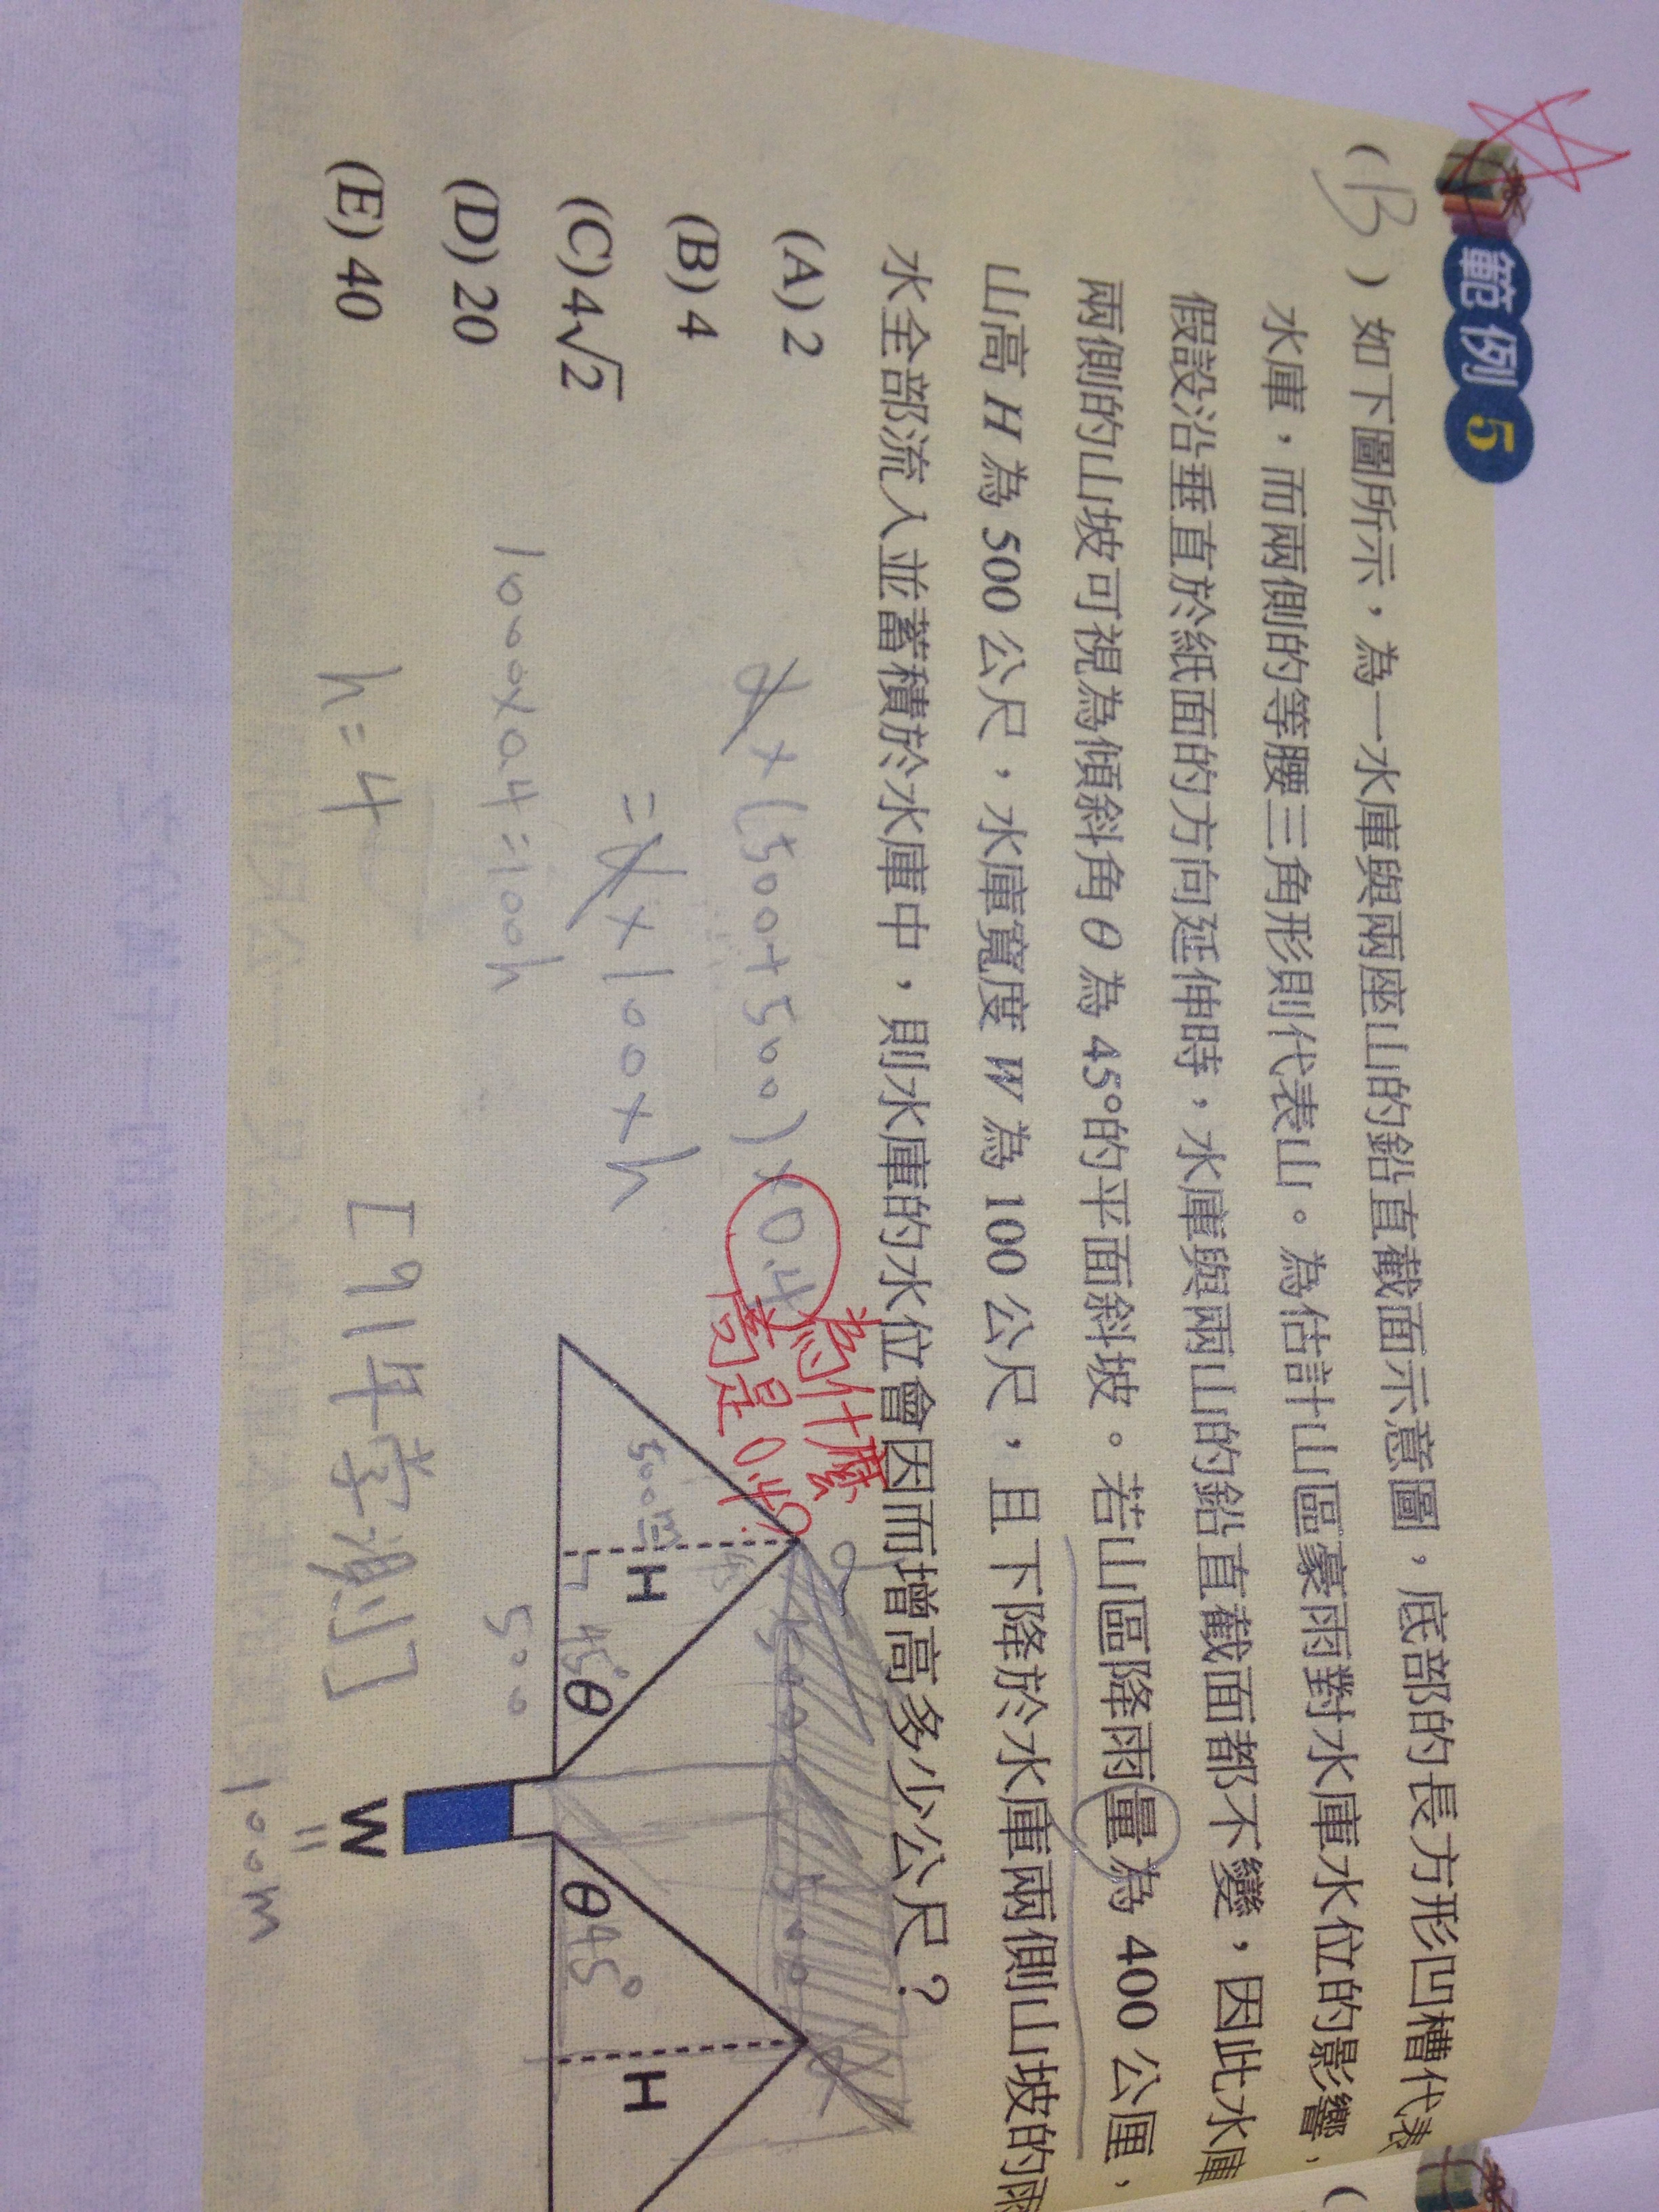 範例 5
( B ) 如下圖所示，為一水庫與兩座山的鉛直截面示意圖，底部的長方形凹槽代表
水庫，而兩側的等腰三角形則代表山。為估計山區豪雨對水庫水位的影響，
假設沿垂直於紙面的方向延伸時，水庫與兩山的鉛直截面都不變，因此水庫
兩側的山坡可視為傾斜角 θ 為 45°的平面斜坡。若山區降雨量為 400 公厘，
山高 H 為 500 公尺，水庫寬度 W 為 100 公尺，且下降於水庫兩側山坡的雨
水全部流入並蓄積於水庫中，則水庫的水位會因而增高多少公尺？
(A) 2
(B) 4
(C) 4√2
(D) 20
(E) 40
x (500+500) x 0.4
= x 100 x h
1000x0.4=100h
h=4
為什麼
高是0.4?
[91年學測]
500m
H
45° θ
500
500
500
θ 45°
H
W
=
100m